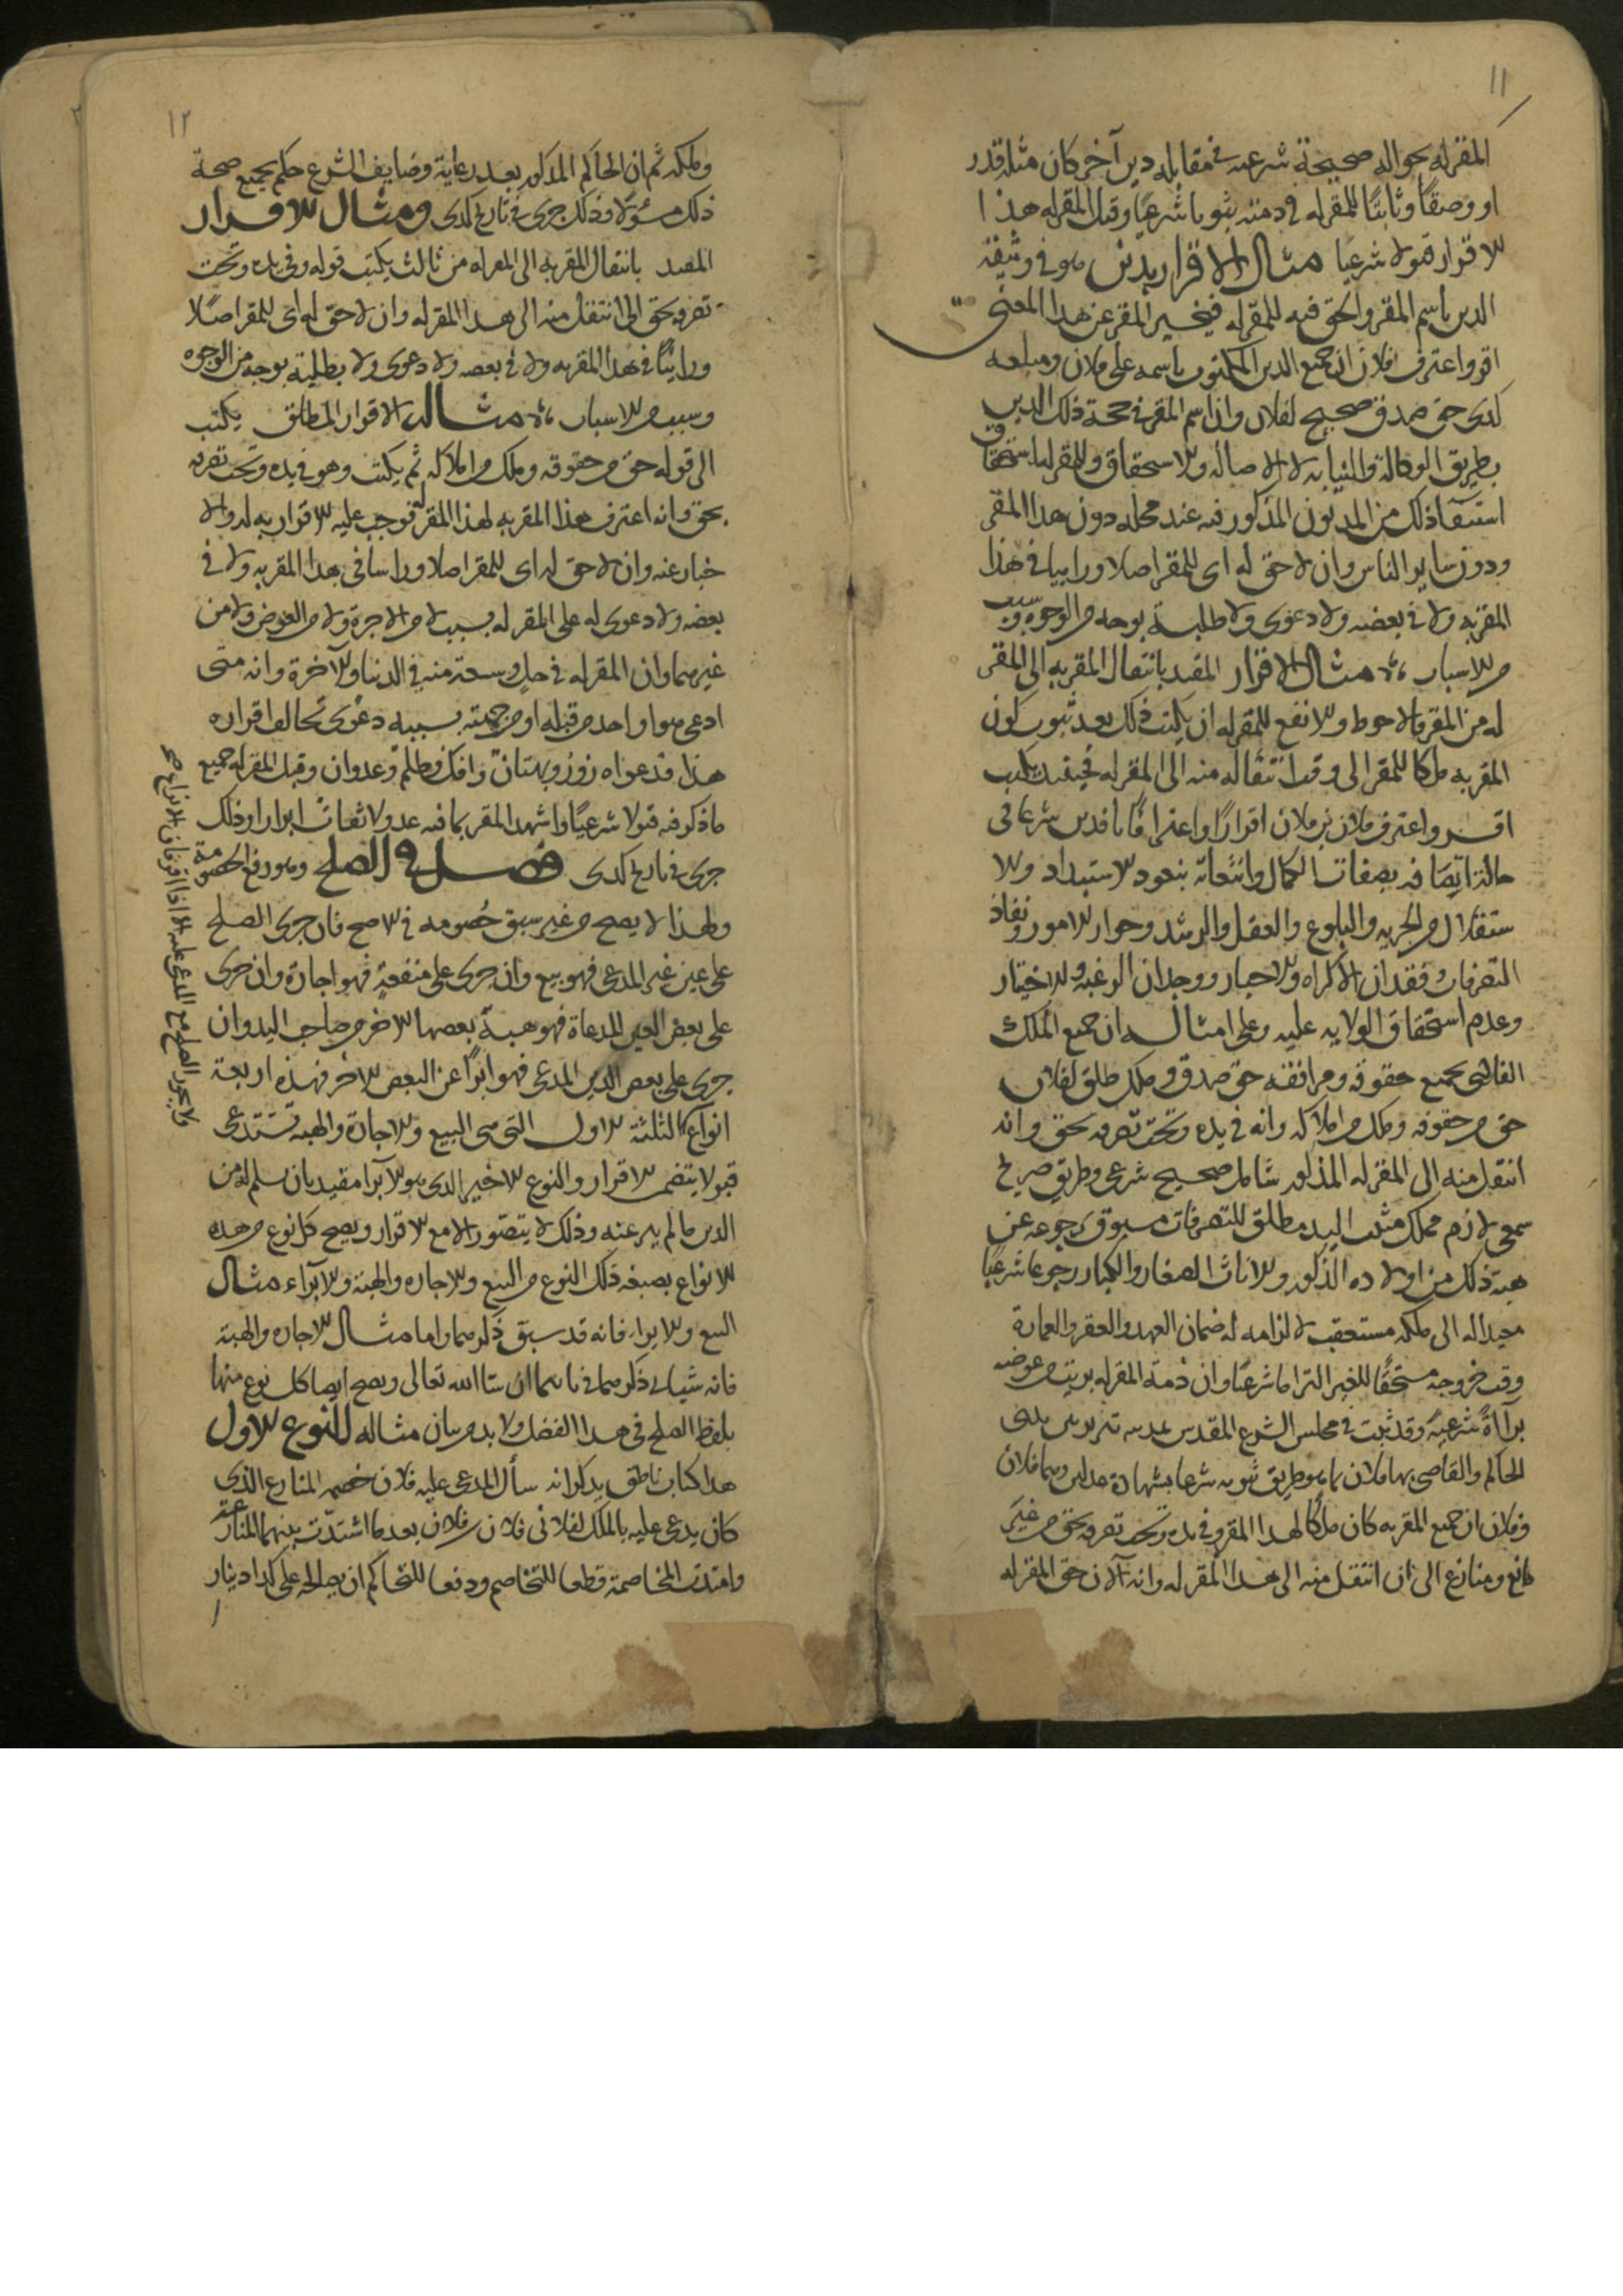 ١١
المقر له بحواله صحيحة شرعيه فى مقابله دين آخر كان مثله قدر
او وصفًا وثابتًا للمقر له فى ذمته ثبوتا شرعيًا وقبل المقر له هذا
الاقرار قبولا شرعيا مثال الاقرار بدين هو فى وثيقة
الدين باسم المقر والحق فيه للمقر له فيخبر المقر عن هذا المعنى
اقر واعترف فلان ان جميع الدين المكتوب باسمه على فلان ومبلغه
كدى حق صدق صحيح لفلان وان اسم المقر فى حجة ذلك الدين
بطريق الوكالة والنيابه لا الاصالة والاستحقاق وللمقر له استحقاق
استيفآ ذلك من المديون المذكور فيه عند محله دون هذا المقر
ودون ساير الناس وان لا حق له اى للمقر اصلا وراسا فى هذا
المقر به ولا فى بعضه ولا دعوى ولا طلبة بوجه من الوجوه وسبب
من الاسباب مثال الاقرار المقيد بانتقال المقر به الى المقر
له من المقر فالاحوط والانفع للمقر له ان يكتب ذلك بعد ثبوت كون
المقر به ملكا للمقر الى وقت انتقاله منه الى المقر له فحينئذ يكتب
اقر واعترف فلان بن فلان اقرارًا واعترافًا نافدين شرعا فى
حالة اتصافه بصفات الكمال واتسامه بنعوت الاستبداد والا
ستقلال من الحريه والبلوغ والعقل والرشد وجواز الامور ونفاذ
التصرفات وفقدان الاكراه والاجبار ووجدان الرغبة والاختيار
وعدم استحقاق الولايه عليه وعلى امثاله ان جميع الملك
الفلانى بجميع حقوقه ومرافقه حق صدق وملك طلق لفلان
حق من حقوقه وملك من املاكه وانه فى يده وتحت تصرفه بحق وانه
انتقل منه الى المقر له المذكور بتمليك صحيح شرعى وطريق صريح
سمعى لازم مملك مثبت اليد مطلق للتصرفات مسبوق برجوعه عن
هبة ذلك من اولاده الذكور والاناث الصغار والكبار رجوعا شرعيًا
معيدا له الى ملكه مستعقب لالتزامه له ضمان العهد والعقر والعمارة
وقت خروجه مستحقًا للغير التزاما شرعيًا وان ذمة المقر له بريت من عوضه
برآاةً شرعيةً وقد ثبت فى مجلس الشرع المقدس بمدينه تبريز بين يدى
الحاكم والقاضى بها فلان بما هو طريق ثبوته شرعا بشهادة عدلين وهما فلان
وفلان ان جميع المقر به كان ملكًا لهذا المقر وفى يده وتحت تصرفه بحق من غير
مانع ومنازع الى ان انتقل منه الى هذا المقر له وانه الآن حق المقر له
١٢
وملكه ثم ان الحاكم المذكور بعد رعاية وضايف الشرع حكم بجميع صحة
ذلك مسئولا وذلك جرى فى تاريخ كدى ومثال الاقرار
المقيد بانتقال المقر به الى المقر له من ثالث يكتب قوله وفى يده وتحت
تصرفه بحق الى ان انتقل منه الى هذا المقر له وان لا حق له اى للمقر اصلًا
وراسًا فى هذا المقر به ولا فى بعضه ولا دعوى ولا بطلبة بوجه من الوجوه
وسبب من الاسباب مثال الاقرار المطلق يكتب
الى قوله حق من حقوقه وملك من املاكه ثم يكتب وهو فى يده وتحت تصرفه
بحق وانه اعترف هذا المقر به لهذا المقر له فوجب عليه الاقرار به له والا
خبار عنه وان لا حق له اى للمقر اصلا وراسا فى هذا المقر به ولا فى
بعضه ولا دعوى له على المقر له بسببه لا من الاجرة ولا من العوض ولا من
غيرهما وان المقر له فى حل وسعة منه فى الدنيا والآخرة وانه متى
ادعى هو او احد من قبله او من جهته بسببه دعوى تخالف اقراره
هذا فدعواه زور وبهتان وافك وظلم وعدوان وقبل المقر له جميع
ما ذكر فيه قبولا شرعيًا واشهد المقر بما فيه عدولا ثقات ابرارا وذلك
جرى فى تاريخ كدى فصل فى الصلح وهو رفع الخصومة
ولهذا لا يصح من غير سبق خصومه فى الاصح فان جرى الصلح
على عين غير المدعى فهو بيع وان جرى على منفعةٍ فهو اجارة وان جرى
على بعض العين المدعاة فهو هبة بعضها الآخر من صاحب اليد وان
جرى على بعض الدين المدعى فهو ابرآ عن البعض الآخر فهذه اربعة
انواع فالثلثة الاول التى هى البيع والاجارة والهبه تستدعى
قبولا يتضمن الاقرار والنوع الاخير الذى هو الابرآ مقيد بان سلم له من
الدين ما لم يبر عنه وذلك لا يتصور الا مع الاقرار ويصح كل نوع من هذه
الانواع بصيغه ذلك النوع من البيع والاجاره والهبة والابرآء مثال
البيع والابراء فانه قد سبق ذكرهما واما مثال الاجاره والهبة
فانه سيأتى ذكرهما فى بابهما ان شا الله تعالى ويصح ايضا كل نوع منها
بلفظ الصلح فى هذا الفصل ولا بد من بيان مثاله النوع الاول
هذا كتاب ناطق بذكر انه سأل المدعى عليه فلان خصمه المنازع الذى
كان يدعى عليه بالملك الفلانى فلان بن فلان بعد ما اشتدّت بينهما المنازعة
وامتدت المخاصمة قطعا للتخاصم ودفعا للتحاكم ان يصالحه على كدا دينار
ولا يجوز الصلح مع المدعى عليه الا اذا اقر فان الانزاع صح